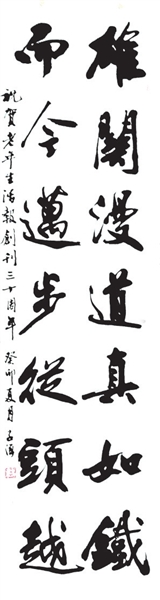 雄關漫道真如鐵
而今邁步從頭越
祝賀老年生活報創刊三十周年 癸卯夏月